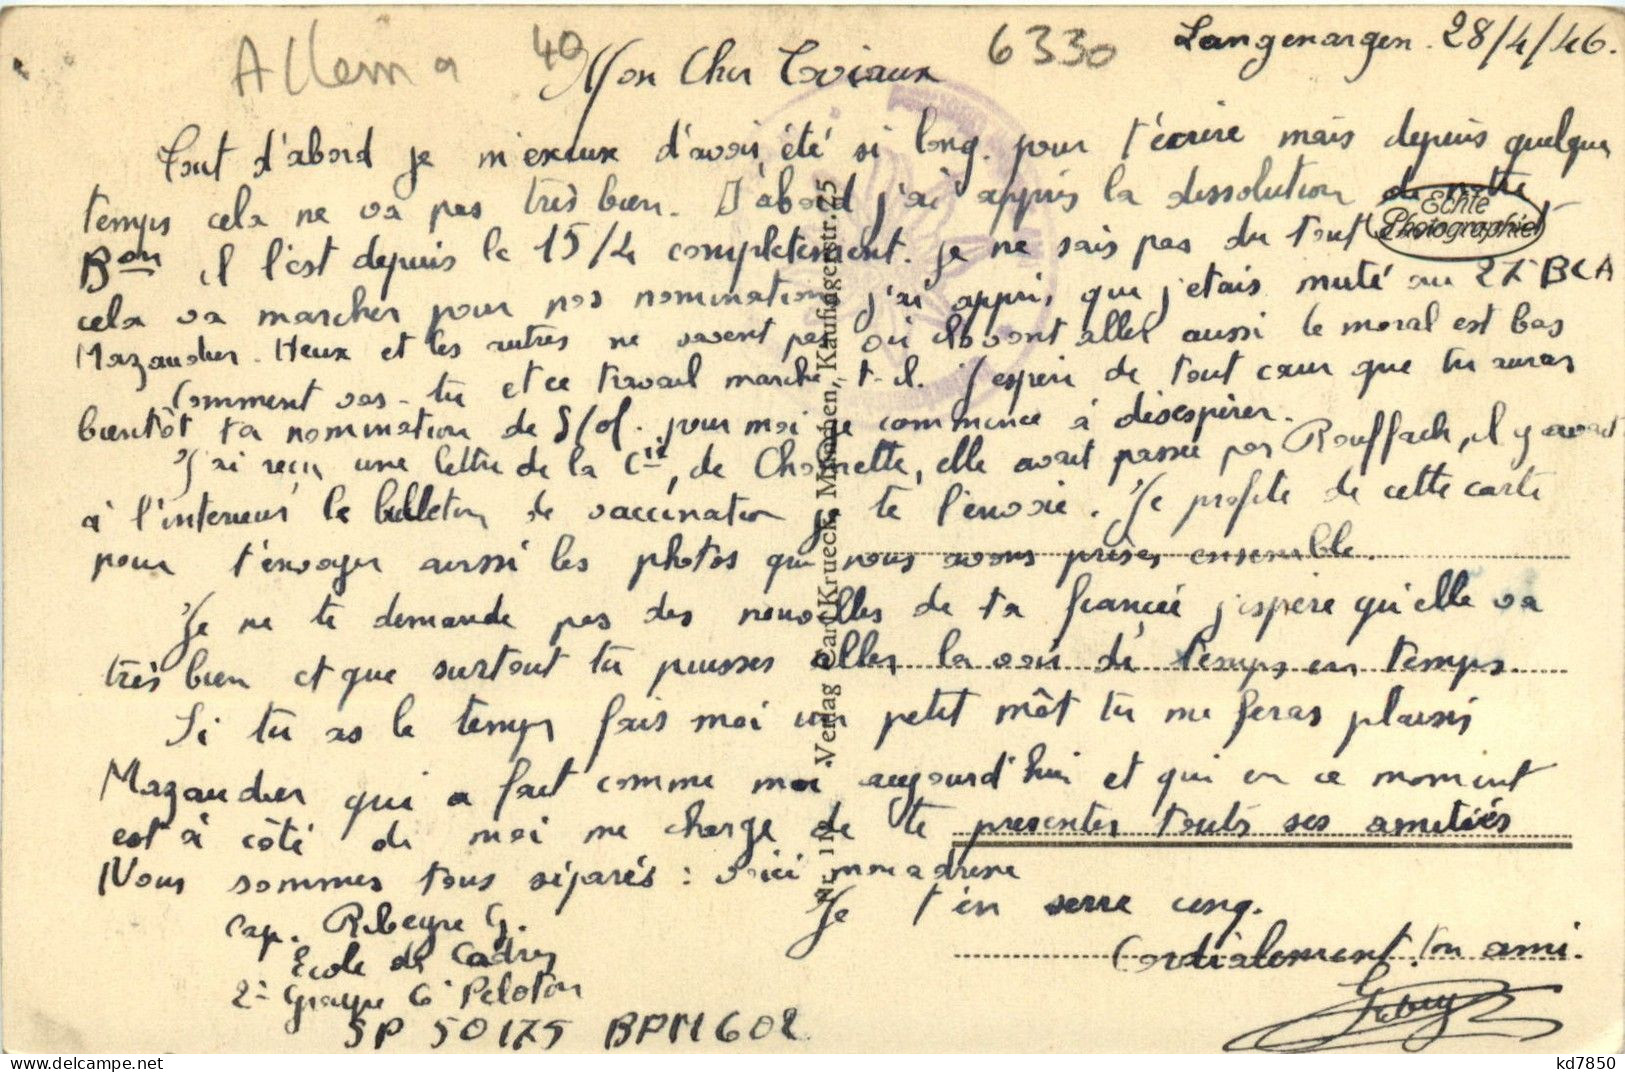 Allema 40 6330
Langenargen. 28/4/46.
Mon Cher Toviaux
Tout d'abord je m'excuse d'avoir été si long. pour t'écrire mais depuis quelque
temps cela ne va pas très bien. D'abord j'ai appris la dissolution de notre
Bon il l'est depuis le 15/4 complètement. je ne sais pas du tout
cela va marcher pour nos nominations j'ai appris que j'etais muté au 27 BCA
Mazaudier. Heux et les autres ne savent pas où ils vont aller aussi le moral est bas
Comment vas-tu et ce travail marche-t-il. J'espère de tout cœur que tu auras
bientôt ta nomination de S/of. pour moi je commence à désespérer.
J'ai reçu une lettre de la Cie, de Charrette, elle avait passée par Rouffach, il y avait
à l'interieur le bulletin de vaccination je te l'envoie. Je profite de cette carte
pour t'envoyer aussi les photos que nous avons prises ensemble.
Je ne te demande pas des nouvelles de ta fiancée j'espère qu'elle va
très bien et que surtout tu puisses aller la voir de temps en temps.
Si tu as le temps fais moi un petit môt tu me feras plaisir
Mazaudier qui a fait comme moi aujourd'hui et qui en ce moment
est à côté de moi me charge de te presenter touts ses amitiés
Nous sommes tous séparés : voici mon adresse
Je t'en serre cinq.
Cap. Ribeyre G.
Ecole de Cadres
2e Groupe 6e Peloton
SP 50175 BPM 602
Cordialement. ton ami.
Echte
Photographie
Verlag Carl Krueck, München, Kaufingerstr. 25
kd7850